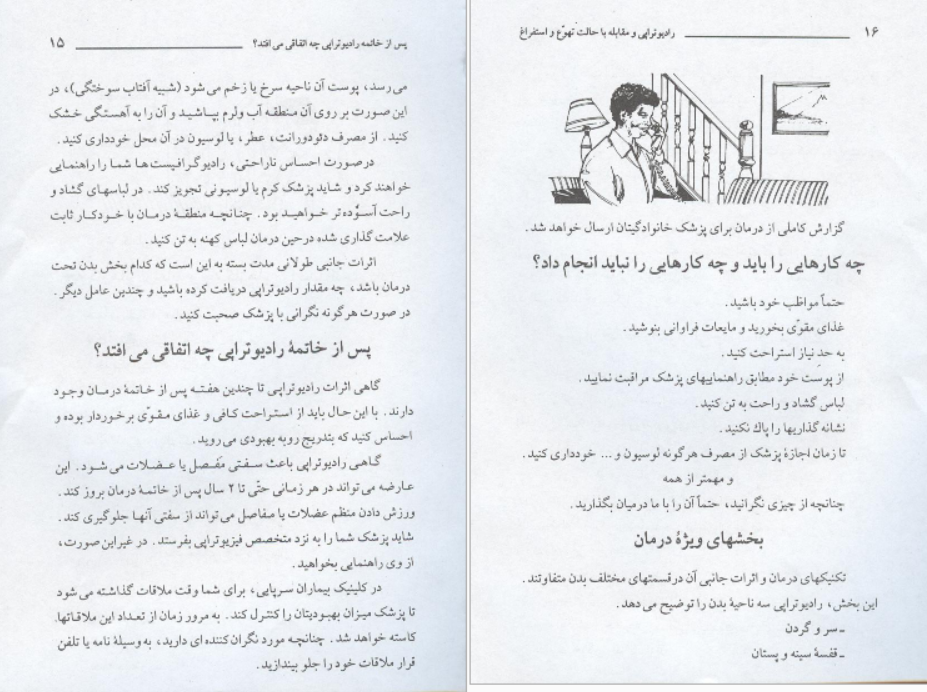 پس از خاتمه رادیوتراپی چه اتفاقی می افتد؟ ۱۵
می‌رسد، پوست آن ناحیه سرخ یا زخم می شود (شبیه آفتاب سوختگی)، در
این صورت بر روی آن منطقه آب ولرم بپاشید و آن را به آهستگی خشک
کنید. از مصرف دئودورانت، عطر، یا لوسیون در آن محل خودداری کنید.
درصورت احساس ناراحتی، رادیوگرافیست‌ها شما را راهنمایی
خواهند کرد و شاید پزشک کرم یا لوسیونی تجویز کند. در لباسهای گشاد و
راحت آسوده‌تر خواهید بود. چنانچه منطقهٔ درمان با خودکار ثابت
علامت گذاری شده درحین درمان لباس کهنه به تن کنید.
اثرات جانبی طولانی مدت بسته به این است که کدام بخش بدن تحت
درمان باشد، چه مقدار رادیوتراپی دریافت کرده باشید و چندین عامل دیگر.
در صورت هرگونه نگرانی با پزشک صحبت کنید.
پس از خاتمهٔ رادیوتراپی چه اتفاقی می افتد؟
گاهی اثرات رادیوتراپی تا چندین هفته پس از خاتمهٔ درمان وجود
دارند. با این حال باید از استراحت کافی و غذای مقوّی برخوردار بوده و
احساس کنید که بتدریج روبه بهبودی می روید.
گاهی رادیوتراپی باعث سفتی مَفصل یا عضلات می شود. این
عارضه می تواند در هر زمانی حتّی تا ۲ سال پس از خاتمهٔ درمان بروز کند.
ورزش دادن منظم عضلات یا مفاصل می تواند از سفتی آنها جلوگیری کند.
شاید پزشک شما را به نزد متخصص فیزیوتراپی بفرستد. در غیراین صورت،
از وی راهنمایی بخواهید.
در کلینیک بیماران سرپایی، برای شما وقت ملاقات گذاشته می شود
تا پزشک میزان بهبودیتان را کنترل کند. به مرور زمان از تعداد این ملاقاتها
کاسته خواهد شد. چنانچه مورد نگران کننده ای دارید، به وسیلهٔ نامه یا تلفن
قرار ملاقات خود را جلو بیندازید.
۱۶ رادیوتراپی و مقابله با حالت تهوّع و استفراغ
گزارش کاملی از درمان برای پزشک خانوادگیتان ارسال خواهد شد.
چه کارهایی را باید و چه کارهایی را نباید انجام داد؟
حتماً مواظب خود باشید.
غذای مقوّی بخورید و مایعات فراوانی بنوشید.
به حدِ نیاز استراحت کنید.
از پوست خود مطابق راهنماییهای پزشک مراقبت نمایید.
لباس گشاد و راحت به تن کنید.
نشانه گذاریها را پاك نکنید.
تا زمان اجازهٔ پزشک از مصرف هرگونه لوسیون و ... خودداری کنید.
و مهمتر از همه
چنانچه از چیزی نگرانید، حتماً آن را با ما درمیان بگذارید.
بخشهای ویژهٔ درمان
تکنیکهای درمان و اثرات جانبی آن درقسمتهای مختلف بدن متفاوتند.
این بخش، رادیوتراپی سه ناحیهٔ بدن را توضیح می دهد.
ـ سر و گردن
ـ قفسهٔ سینه و پستان